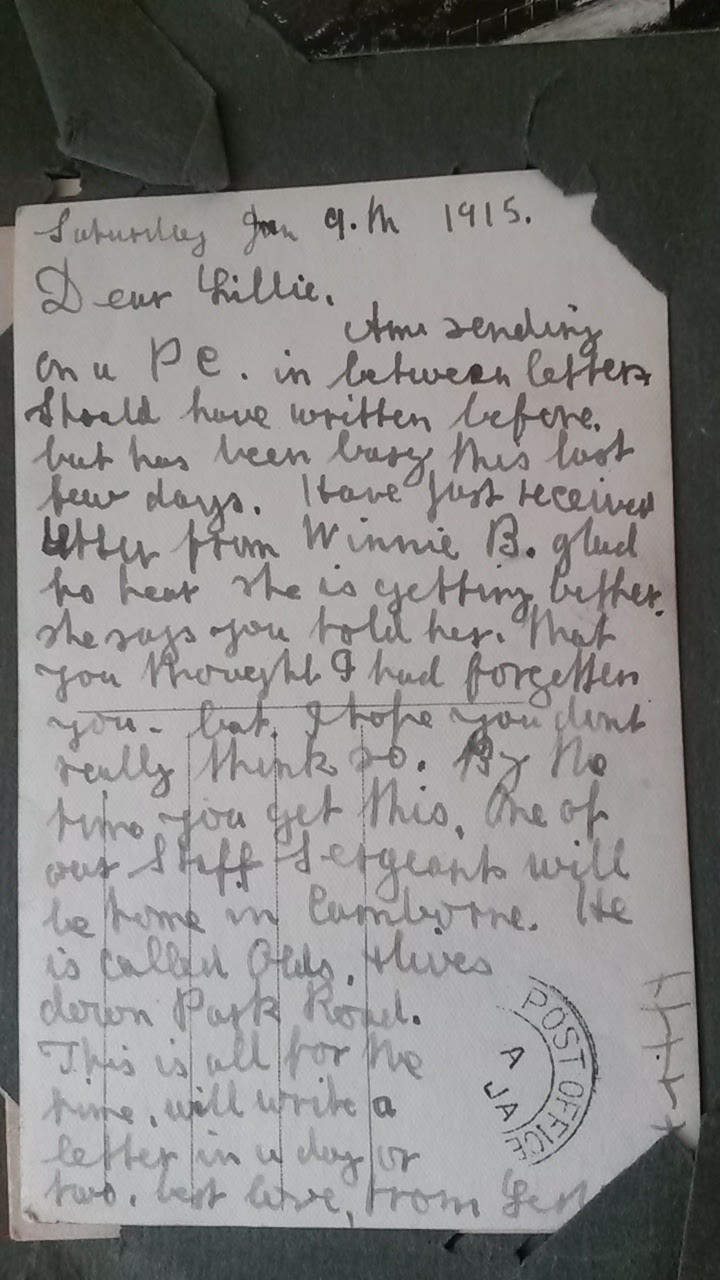 Saturday Jan 9.th 1915.
Dear Lillie.
Am sending
on a P C. in between letters
Should have written before.
but has been busy this last
few days. Have just received
letter from Winnie B. glad
to hear she is getting better.
she says you told her. that
you thought I had forgotten
you. but. I hope you dont
really think so. By the
time you get this, one of
our Staff Sergeants will
be home in Camborne. He
is called Olds, & lives
down Park Road.
This is all for the
time, will write a
letter in a day or
two. best love, from
POST OFFICE
A
JA